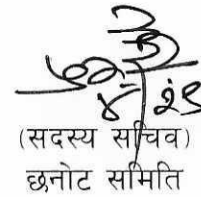 (सदस्य सचिव)
छनोट समिति